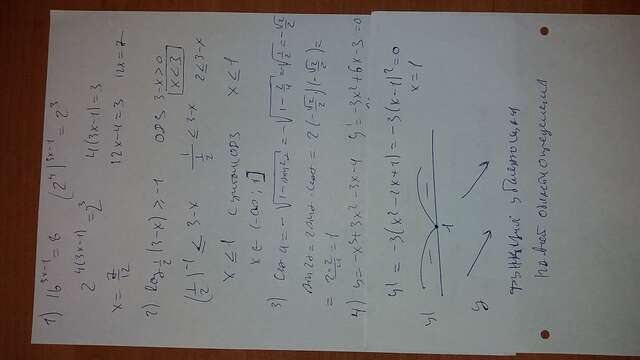 1) 16^(3x-1) = 8 (2^4)^(3x-1) = 2^3
2^(4(3x-1)) = 2^3 4(3x-1) = 3
x = 7/12 12x-4=3 12x=7
2) log_(1/2)(3-x) ≥ -1 ОДЗ 3-x>0
x<3
(1/2)^-1 ≤ 3-x 2≤3-x
x ≤ 1 с учетом ОДЗ x ≤ 1
x ∈ (-∞; 1]
3) cos α = -√(1-sin²α) = -√(1-1/2) = -√(1/2) = -√2/2
sin2α = 2sinα·cosα = 2(-√2/2)(-√2/2) =
= 2·2/4 = 1
4) y = -x³+3x²-3x-4 y' = -3x²+6x-3=0
y' = -3(x²-2x+1) = -3(x-1)²=0
x=1
y' - 1 -
y
функция убывает
на всей области определения